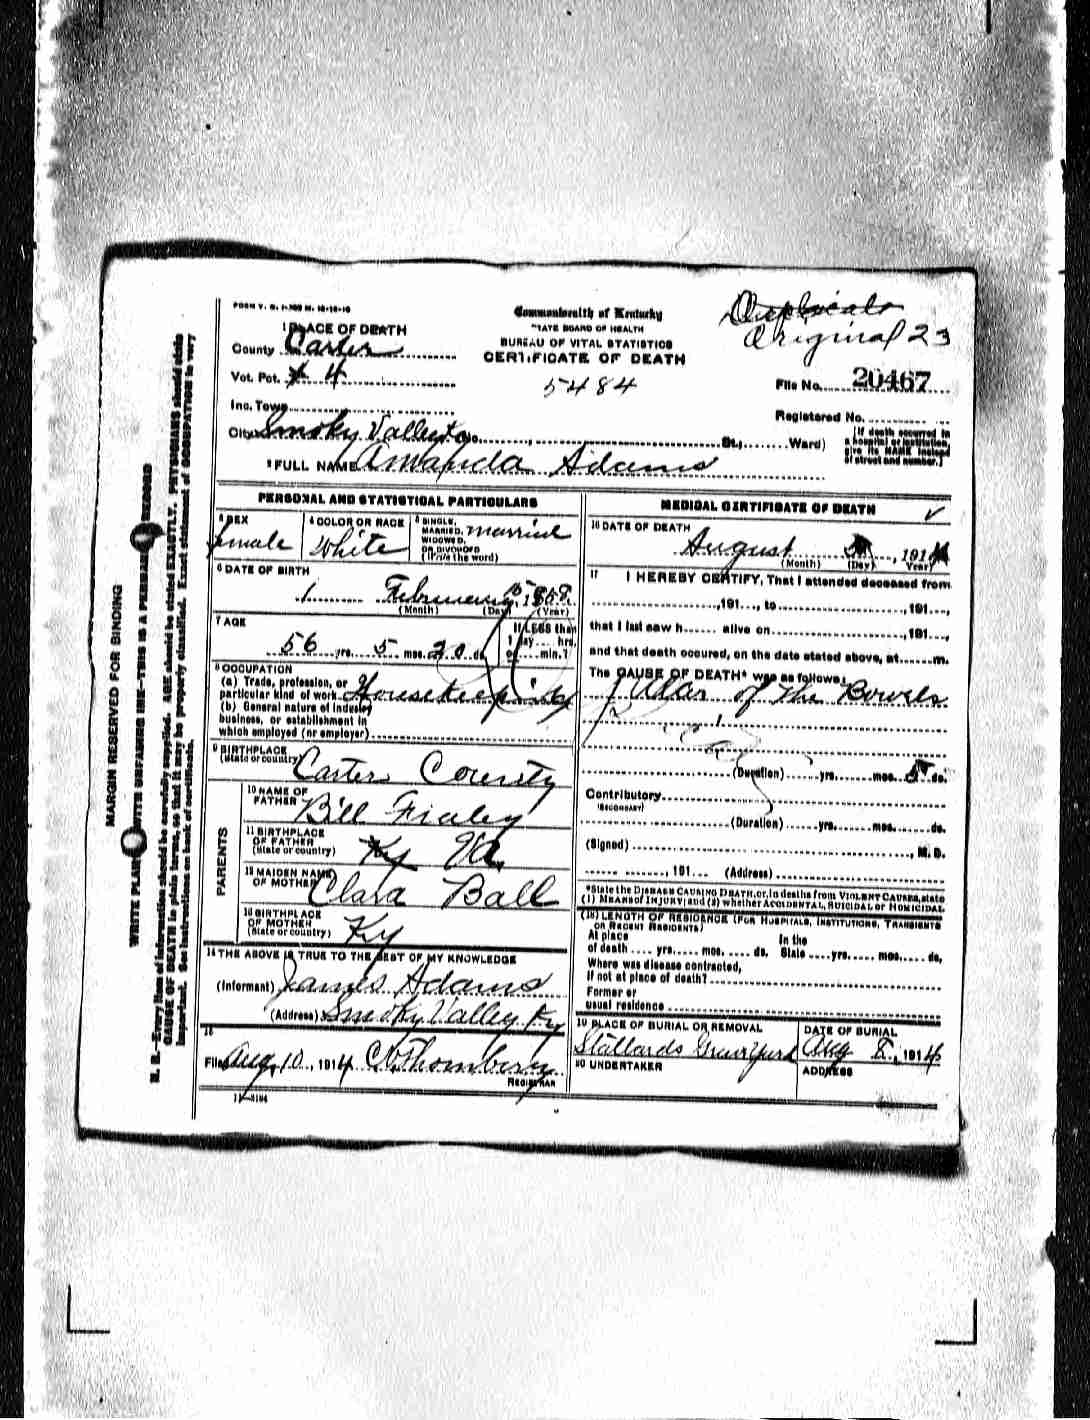 FORM V. S.
Commonwealth of Kentucky
STATE BOARD OF HEALTH
BUREAU OF VITAL STATISTICS
CERTIFICATE OF DEATH
5484
Duplicate
Original 23
File No. 20467
Registered No.
1 PLACE OF DEATH
County Carter
Vot. Pct. 4
Inc. Town
City Smoky Valley No. , St., Ward)
[If death occurred in
a hospital or institution,
give its NAME instead
of street and number.]
2 FULL NAME Amanda Adams
PERSONAL AND STATISTICAL PARTICULARS
3 SEX
female
4 COLOR OR RACE
White
5 SINGLE,
MARRIED,
WIDOWED,
OR DIVORCED
(Write the word)
married
6 DATE OF BIRTH
1 February 15 1858
(Month) (Day) (Year)
7 AGE
56 yrs. 5 mos. 20 ds.
If LESS than
1 day hrs.
or min.?
8 OCCUPATION
(a) Trade, profession, or
particular kind of work Housekeeping
(b) General nature of industry
business, or establishment in
which employed (or employer)
9 BIRTHPLACE
(State or country) Carter County
PARENTS
10 NAME OF
FATHER Bill Fraley
11 BIRTHPLACE
OF FATHER
(State or country) Ky Va.
12 MAIDEN NAME
OF MOTHER Clara Ball
13 BIRTHPLACE
OF MOTHER
(State or country) Ky
14 THE ABOVE IS TRUE TO THE BEST OF MY KNOWLEDGE
(Informant) James Adams
(Address) Smoky Valley Ky
15
Filed Aug 10, 1914
REGISTRAR
MEDICAL CERTIFICATE OF DEATH
16 DATE OF DEATH
August , 1914
(Month) (Day) (Year)
17 I HEREBY CERTIFY, That I attended deceased from
, 191 , to , 191 ,
that I last saw h alive on , 191 ,
and that death occured, on the date stated above, at m.
The CAUSE OF DEATH* was as follows:
of the Bowels
(Duration) yrs. mos. 5 ds.
Contributory
(SECONDARY)
(Duration) yrs. mos. ds.
(Signed) , M. D.
, 191 (Address)
*State the DISEASE CAUSING DEATH, or, in deaths from VIOLENT CAUSES, state
(1) MEANS of INJURY; and (2) whether ACCIDENTAL, SUICIDAL or HOMICIDAL.
(18) LENGTH OF RESIDENCE (FOR HOSPITALS, INSTITUTIONS, TRANSIENTS
OR RECENT RESIDENTS)
At place In the
of death yrs. mos. ds. State yrs. mos. ds.
Where was disease contracted,
if not at place of death?
Former or
usual residence
19 PLACE OF BURIAL OR REMOVAL
Stallards Graveyard
DATE OF BURIAL
Aug , 1914
20 UNDERTAKER
ADDRESS
MARGIN RESERVED FOR BINDING
WRITE PLAINLY, WITH UNFADING INK—THIS IS A PERMANENT RECORD
N. B.—Every item of information should be carefully supplied. AGE should be stated EXACTLY. PHYSICIANS should state
CAUSE OF DEATH in plain terms, so that it may be properly classified. Exact statement of OCCUPATION is very
important. See instructions on back of certificate.